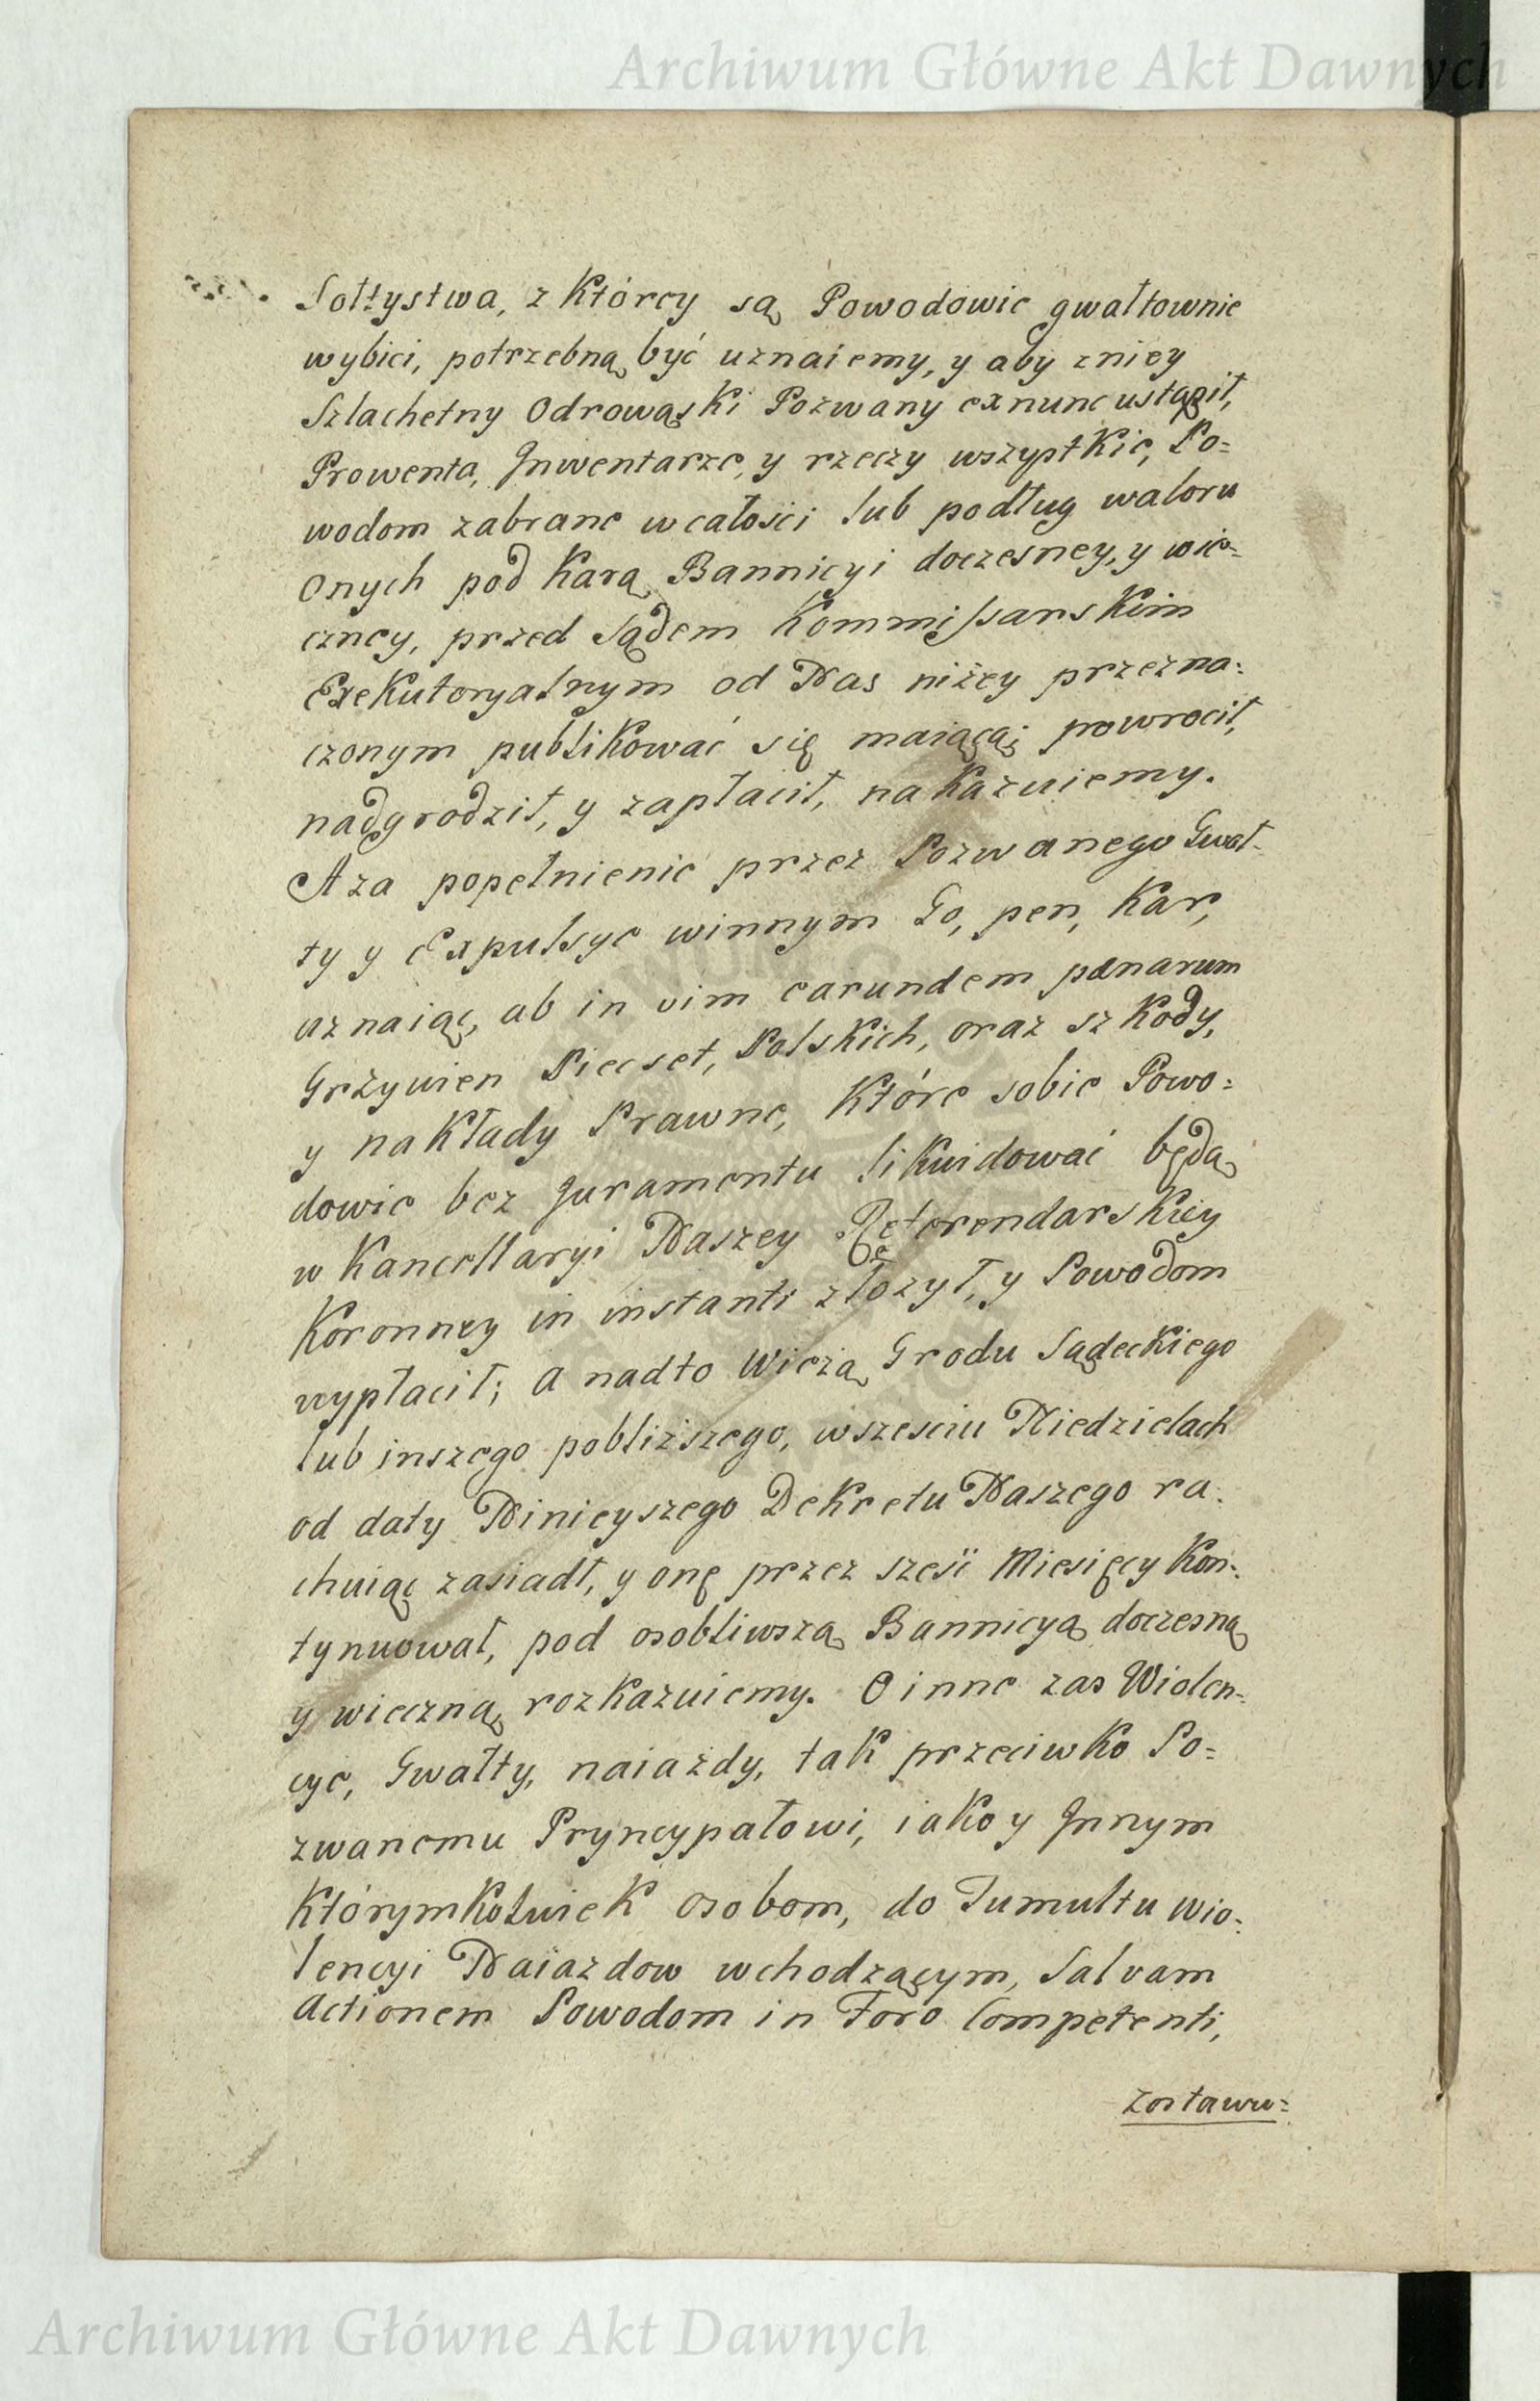 Archiwum Główne Akt Dawnych
Sołtystwa, z którey są Powodowie gwałtownie
wybici, potrzebną być uznaiemy, y aby zniey
Szlachetny Odrowąski Pozwany exnunc ustąpił,
Prowenta, Inwentarze, y rzeczy wszyptkie, Po=
wodom zabrane wcałości lub podług waloru
onych pod karą Bannicyi doczesney, y wie=
czney, przed Sądem Kommissarskim
Exekutoryalnym od Nas niżey przezna:
czonym publikować się maiącą; powrocił,
nadgrodził, y zapłacił, nakazuiemy.
A za popełnienie przez Pozwanego Gwał-
ty y Expulsye winnym Go, pen, kar,
uznaiąc, ab in vim earundem pænarum
Grzywien Piecset, Polskich, oraz szkody,
y nakłady Prawne, które sobie Powo=
dowie bez Juramentu likwidować będą
w Kancellaryi Naszey Referendarskiey
Koronney in instanti złożył, y Powodom
wypłacił; a nadto Wieżą Grodu Sądeckiego
lub inszego pobliższego, wszesciu Niedzielach
od daty Ninieyszego Dekretu Naszego ra:
chuiąc zasiadł, y onę przez sześć Miesięcy kon:
tynuował, pod osobliwszą Bannicyą doczesną
y wieczną rozkazuiemy. O inne zas Wiolen=
cye, Gwałty, naiazdy, tak przeciwko Po=
zwanemu Pryncypałowi, iako y Innym
którymkolwiek osobom, do Tumultu Wio:
lencyi Naiazdow wchodzącym, Salvam
Actionem Powodom in Foro Competenti,
zostawu=
Archiwum Główne Akt Dawnych